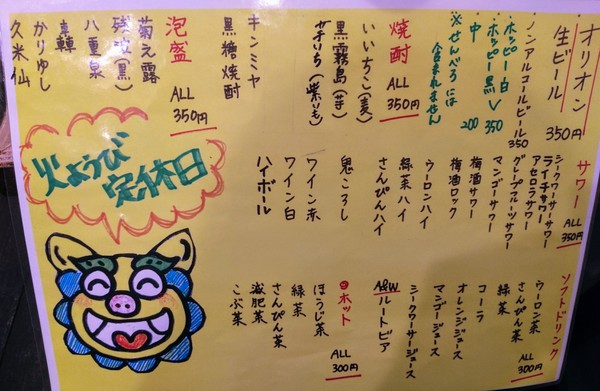 オリオン
生ビール
350円
ノンアルコールビール
350
ホッピー白
ホッピー黒 350
中 200
※せんべろには
含まれません
焼酎
ALL
350円
いいちこ(麦)
黒霧島(芋)
(紫いも)
キンミヤ
黒糖焼酎
泡盛
ALL
350円
菊之露
残波(黒)
八重泉
轟
かりゆし
久米仙
サワー
ALL
350円
シークワーサーサワー
ライチサワー
アセロラサワー
グレープフルーツサワー
マンゴーサワー
梅酒サワー
梅酒ロック
ウーロンハイ
緑茶ハイ
さんぴんハイ
鬼ころし
ワイン赤
ワイン白
ハイボール
ソフトドリンク
ALL
300円
ウーロン茶
さんぴん茶
緑茶
コーラ
オレンジジュース
マンゴージュース
シークワーサージュース
A&W
ルートビア
ホット
ALL
300円
ほうじ茶
緑茶
さんぴん茶
減肥茶
こぶ茶
火ようび
定休日